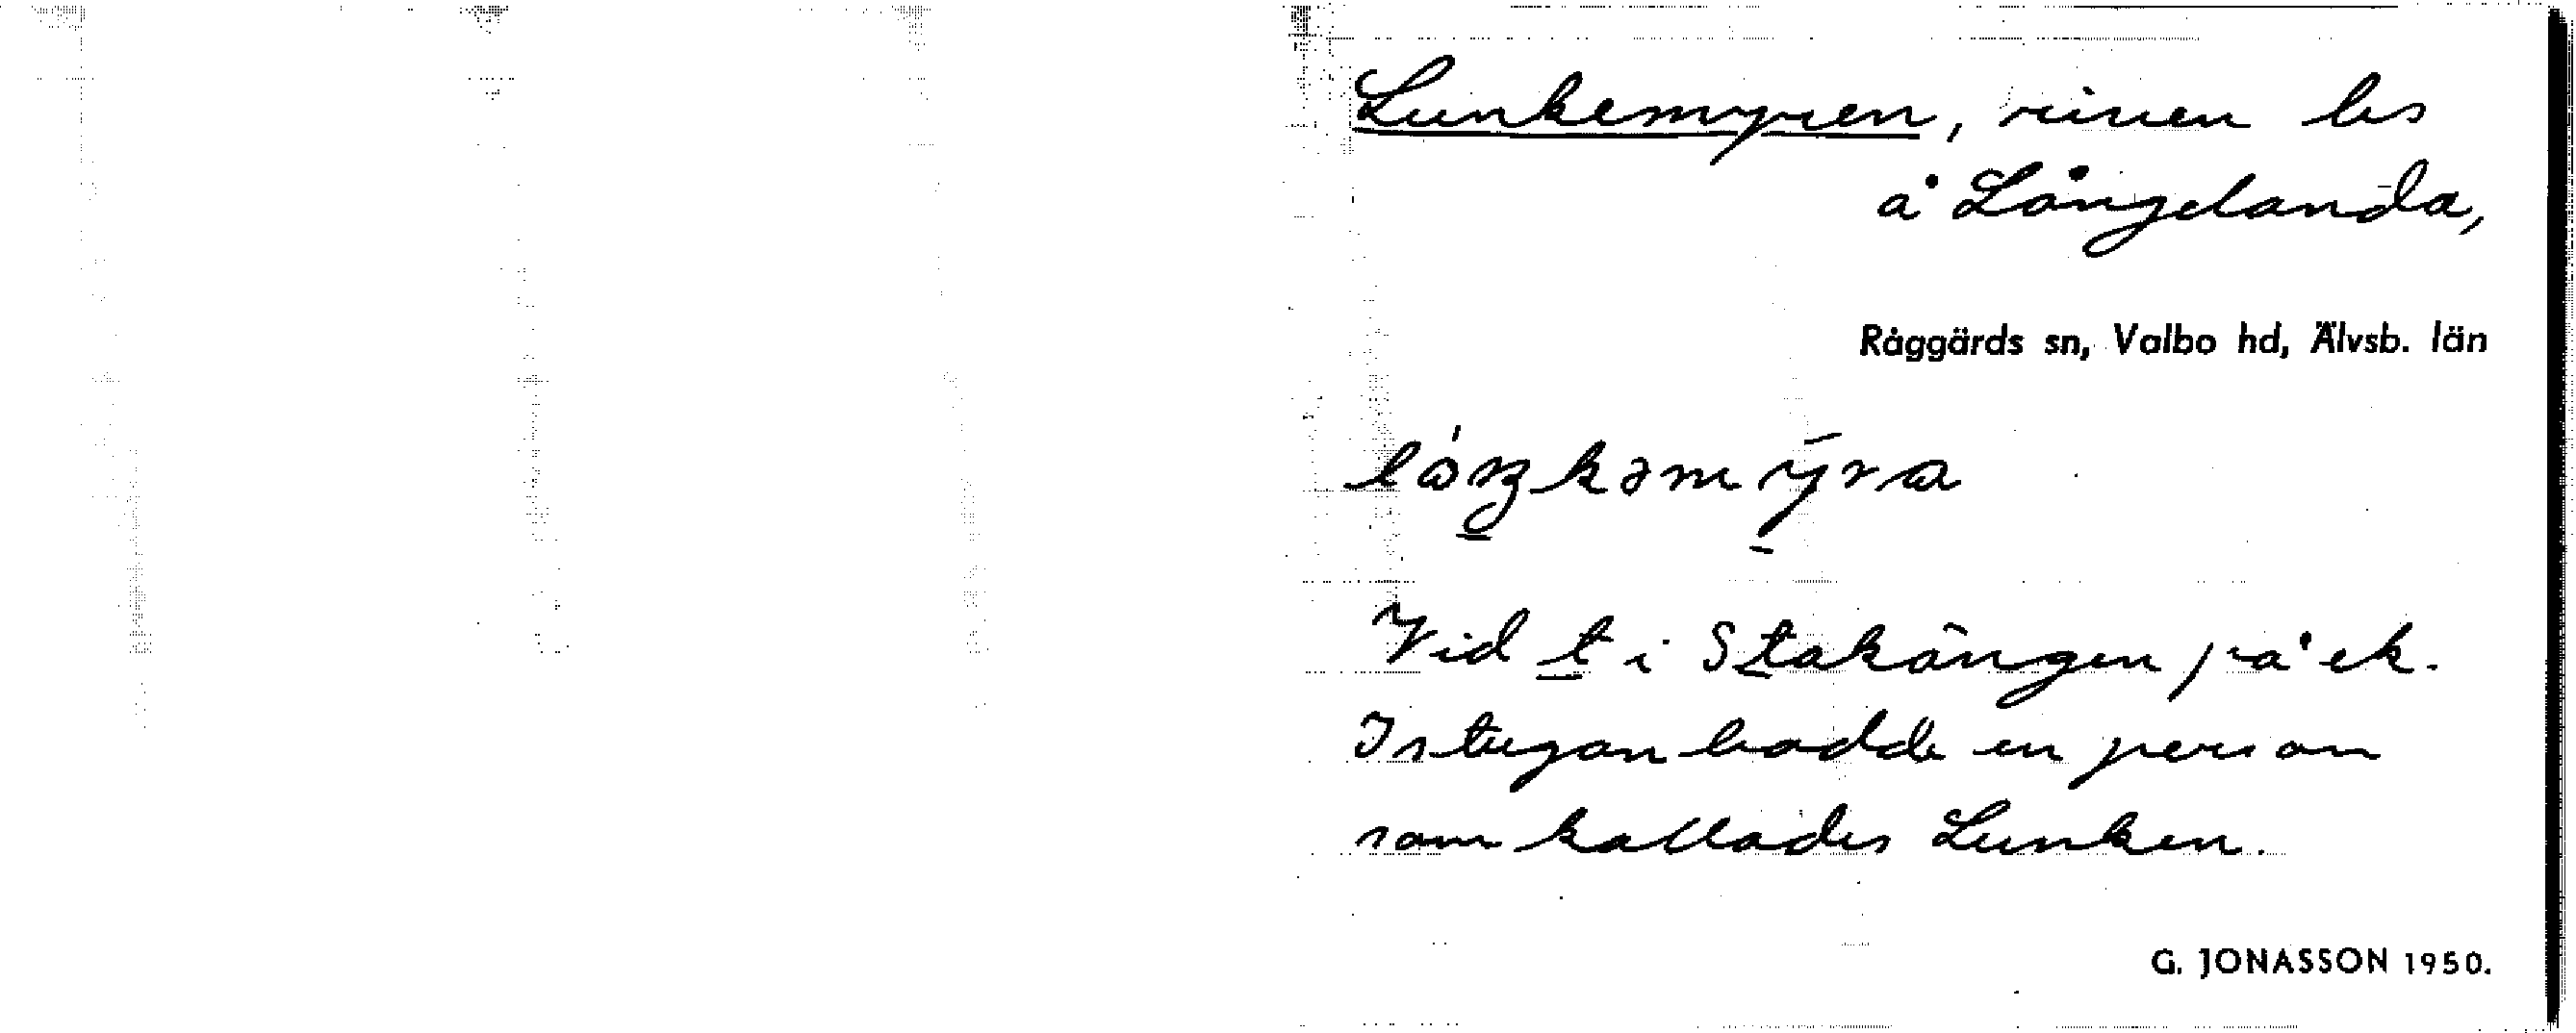 Lunkemyren, riven les
å Långelanda,
Råggärds sn, Valbo hd, Älvsb. län
Vid t i Stakängen på ek.
I stugan bodde en person
som kallades Lunken.
G. JONASSON 1950.